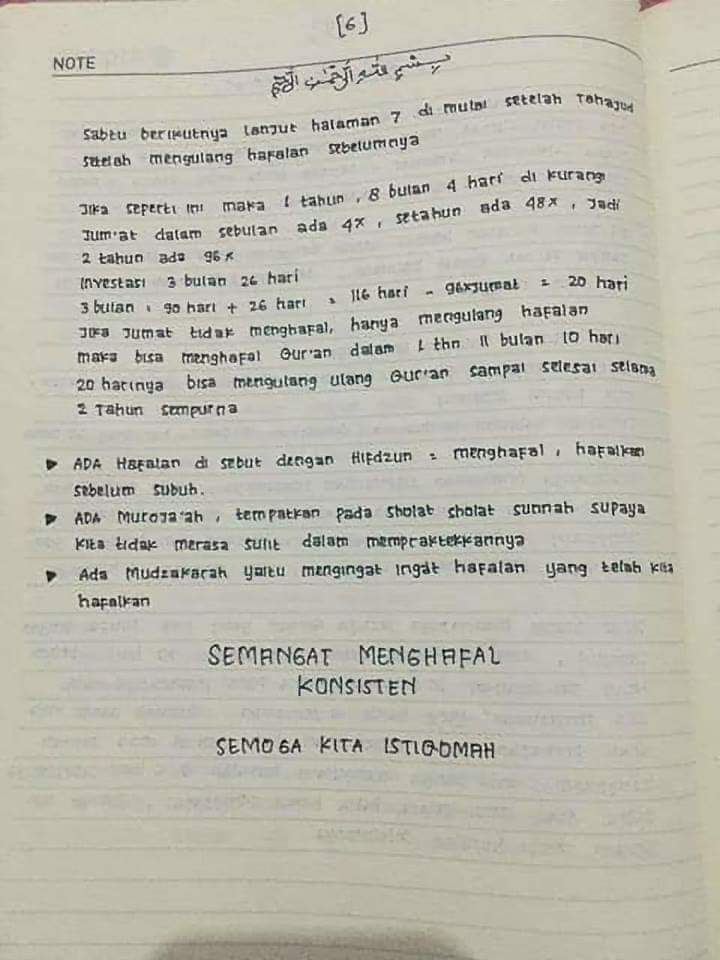 [6]
NOTE
بِسْمِ اللهِ الرَّحْمٰنِ الرَّحِيْمِ
Sabtu berikutnya lanjut halaman 7 di mulai setelah Tahajud
setelah mengulang hafalan sebelumnya
Jika seperti ini maka 1 tahun, 8 bulan 4 hari di kurangi
Jum'at dalam sebulan ada 4x, setahun ada 48x, Jadi
2 tahun ada 96x
Investasi 3 bulan 26 hari
3 bulan : 90 hari + 26 hari = 116 hari - 96xJumat = 20 hari
Jika Jumat tidak menghafal, hanya mengulang hafalan
maka bisa menghafal Qur'an dalam 1 thn 11 bulan 10 hari
20 harinya bisa mengulang ulang Qur'an sampai selesai selama
2 Tahun sempurna
▶ ADA Hafalan di sebut dengan Hifdzun = menghafal, hafalkan
sebelum subuh.
▶ ADA Muroja'ah, tempatkan pada sholat sholat sunnah supaya
kita tidak merasa sulit dalam mempraktekkannya
▶ Ada Mudzakarah yaitu mengingat ingat hafalan yang telah kita
hafalkan
SEMANGAT MENGHAFAL
KONSISTEN
SEMOGA KITA ISTIQOMAH